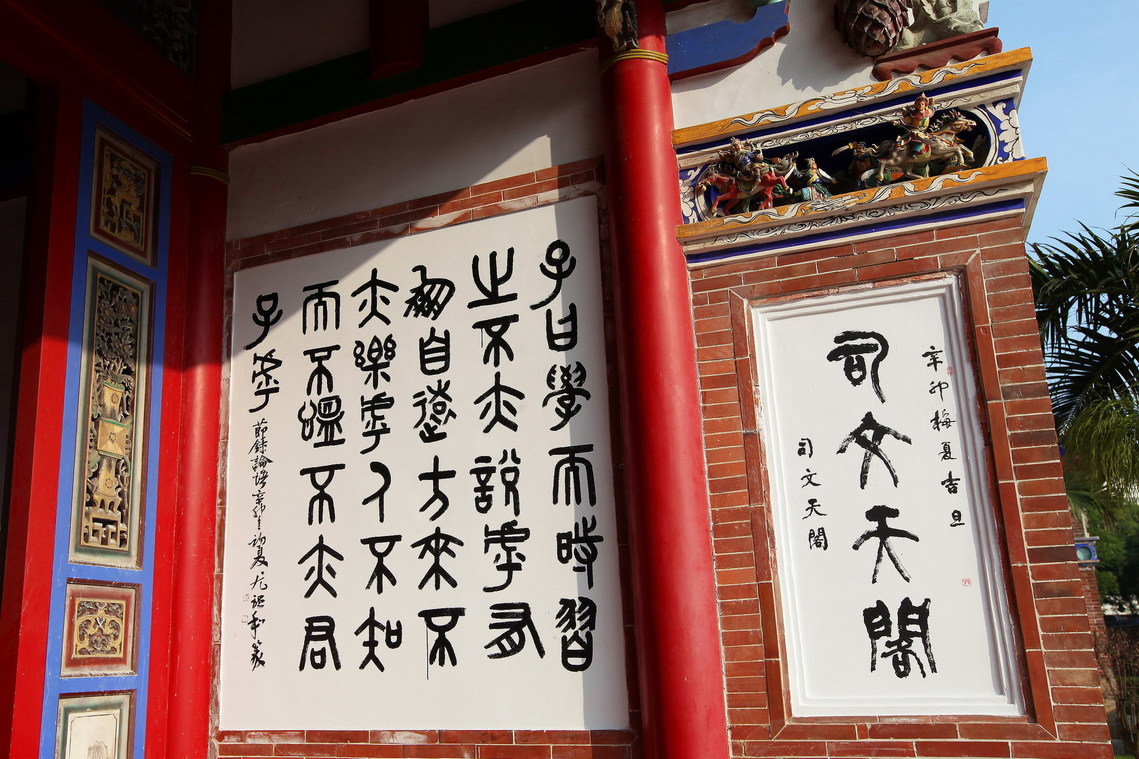 辛卯梅夏吉旦
司文天閣
司文天閣
子曰學而時習
之不亦說乎有
朋自遠方來不
亦樂乎人不知
而不慍不亦君
子乎
節錄論語辛卯初夏尤篆